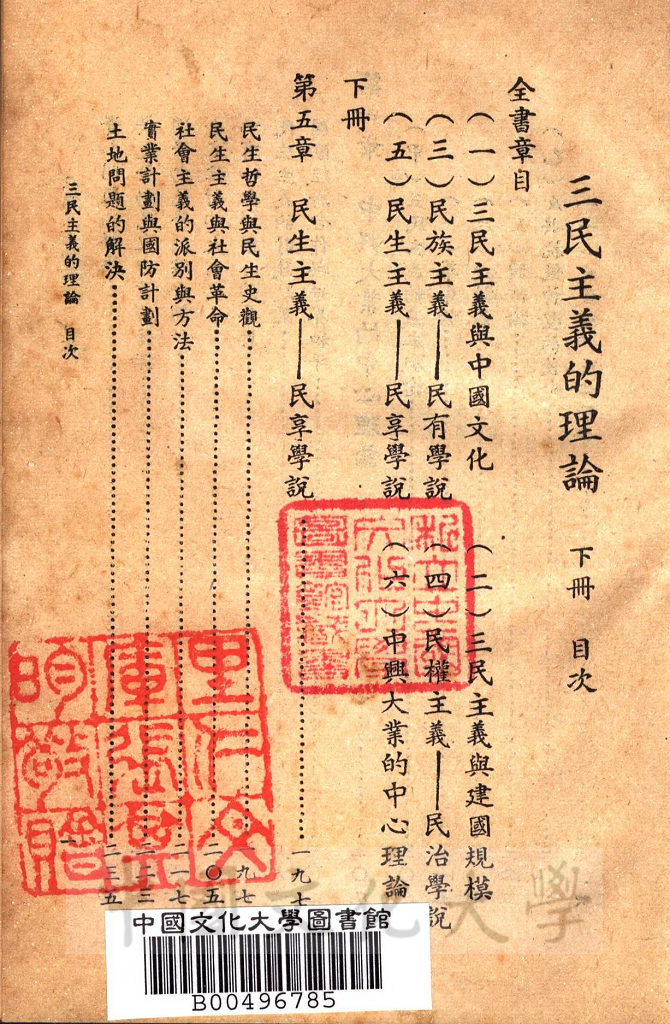 三民主義的理論 下冊 目次
全書章目
（一）三民主義與中國文化 （二）三民主義與建國規模
（三）民族主義——民有學說 （四）民權主義——民治學說
（五）民生主義——民享學說 （六）中興大業的中心理論
下冊
第五章 民生主義——民享學說……一九七
民生哲學與民生史觀……一九七
民生主義與社會革命……二〇五
社會主義的派別與方法……二一七
實業計劃與國防計劃……二二三
土地問題的解決……二三五
三民主義的理論 目次
中國文化大學
中國文化大學圖書館
B00496785